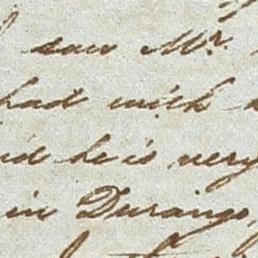 saw Mr.
had with
he is very
in Durango,